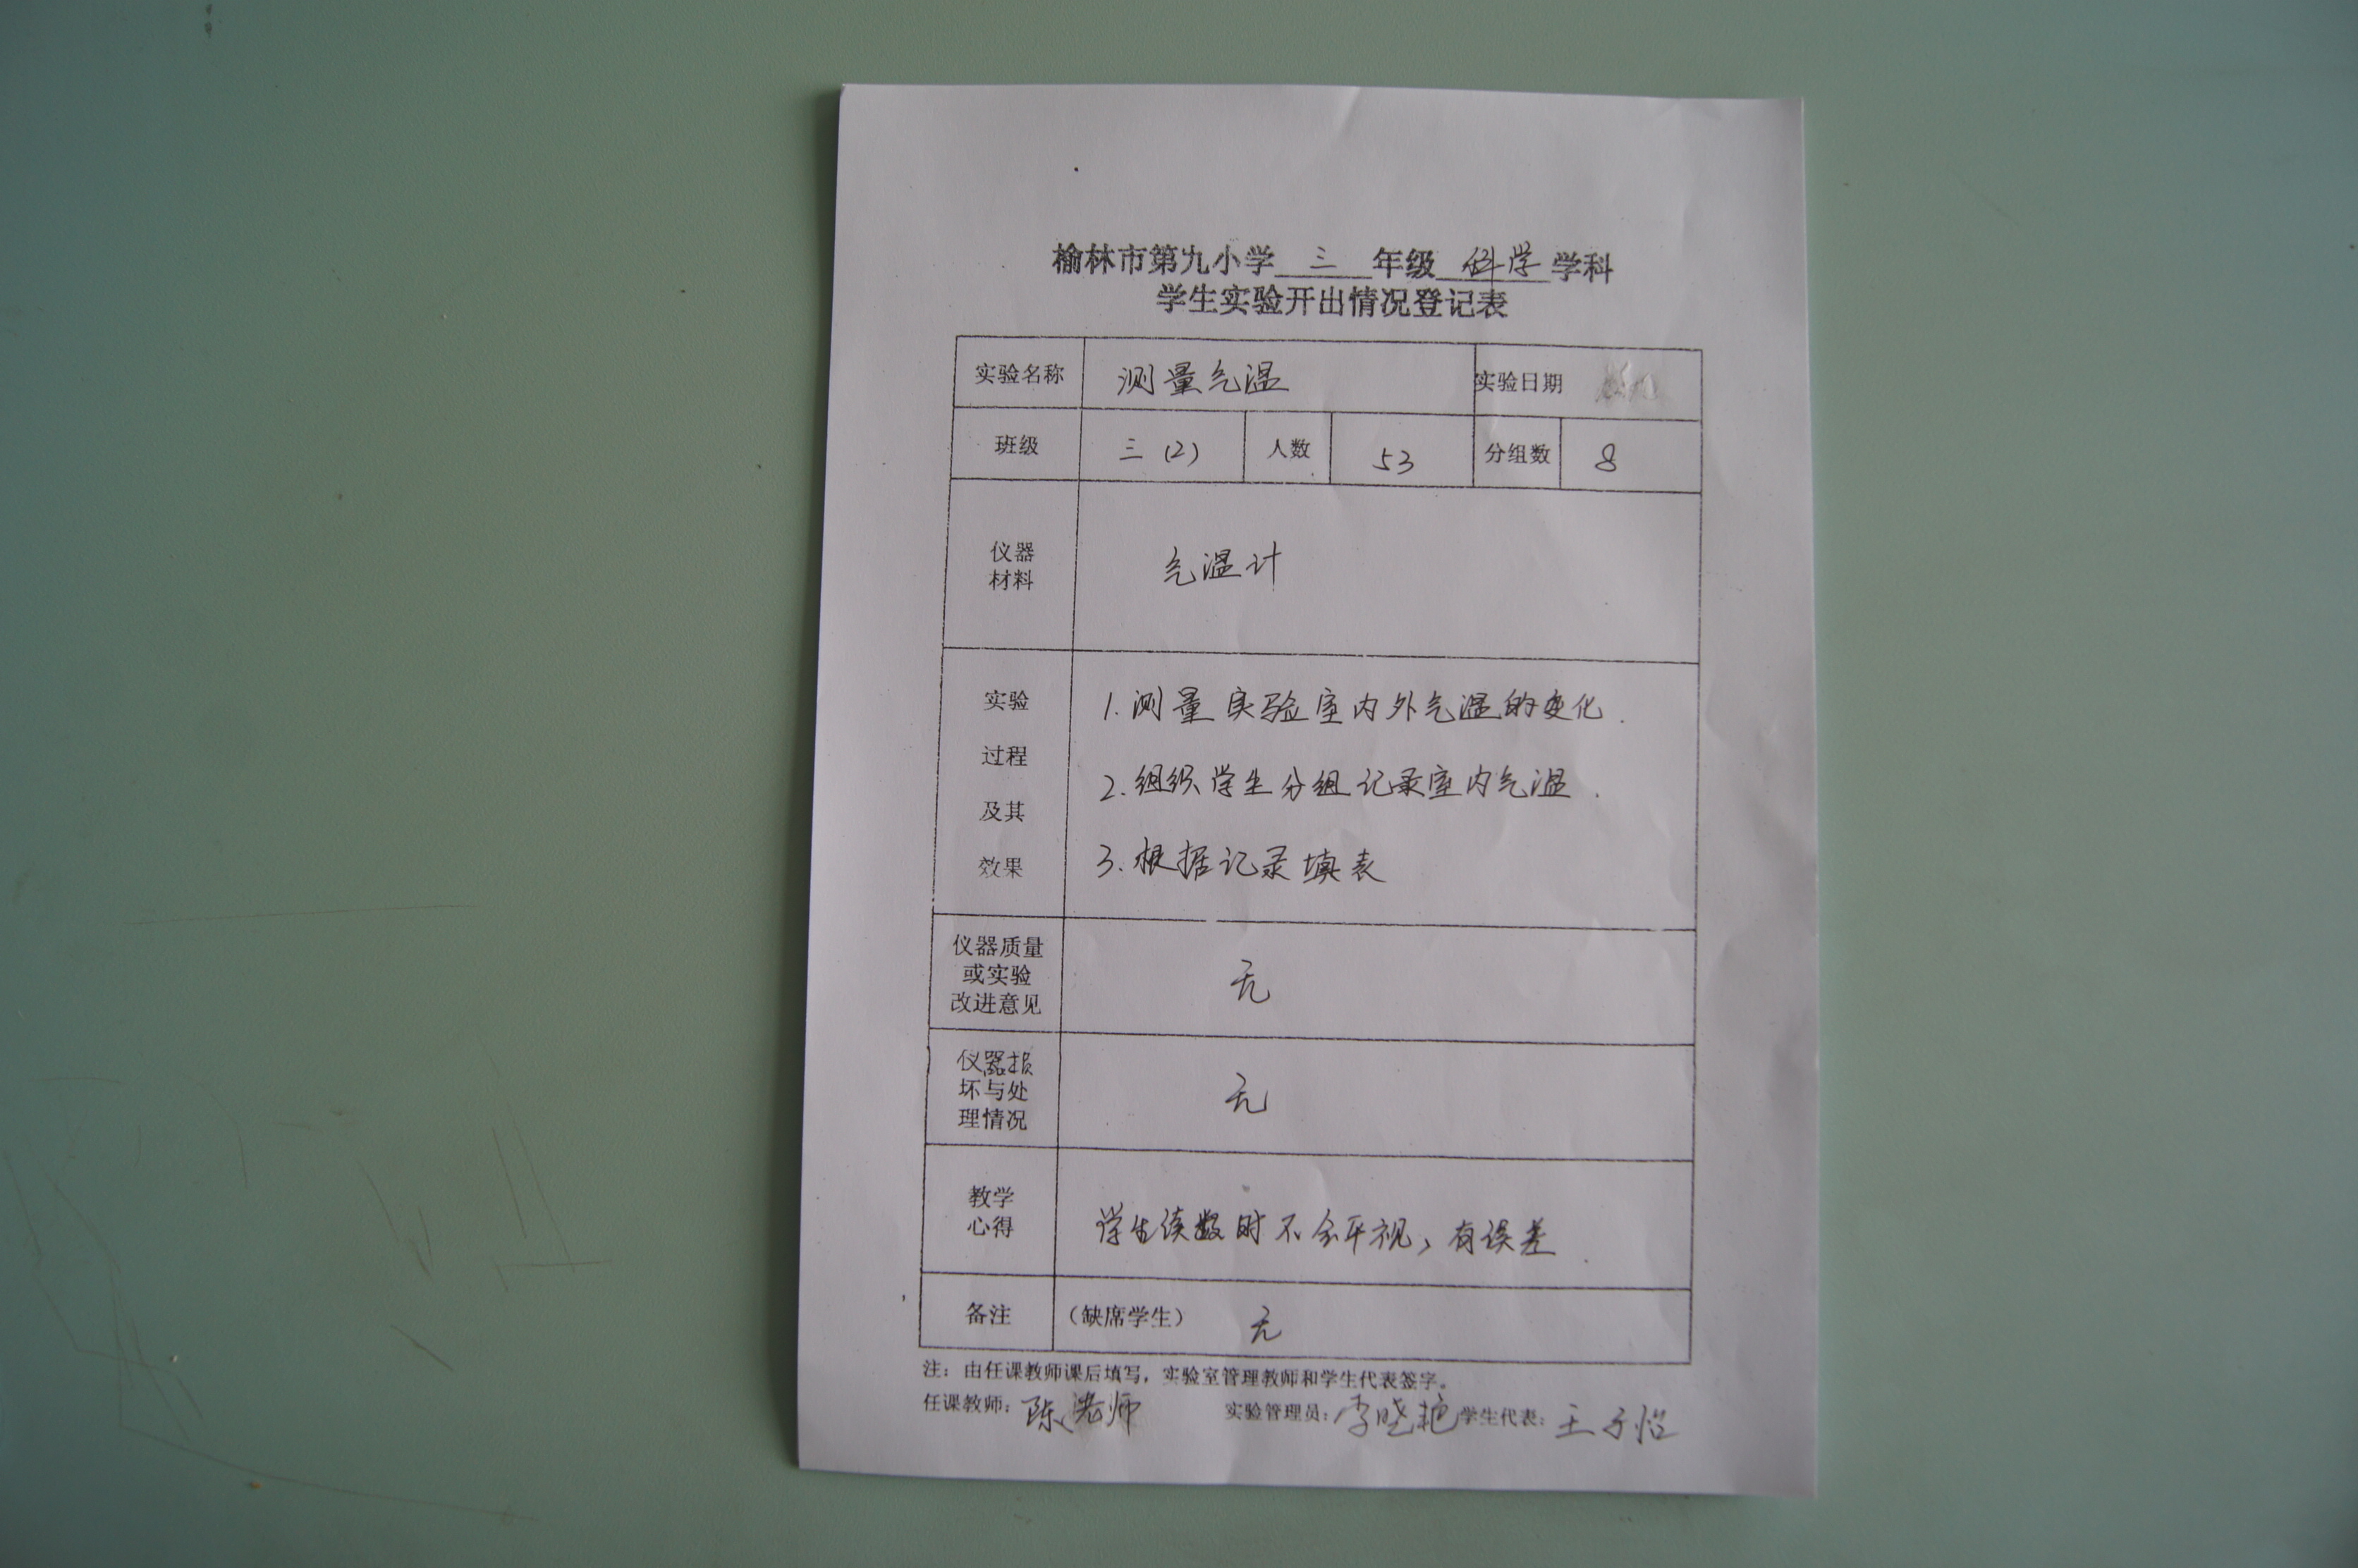 榆林市第九小学 三 年级 科学 学科
学生实验开出情况登记表
实验名称 测量气温 实验日期
班级 三(2) 人数 53 分组数 8
仪器
材料
气温计
实验
过程
及其
效果
1.测量实验室内外气温的变化.
2.组织学生分组记录室内气温.
3.根据记录填表
仪器质量
或实验
改进意见
无
仪器损
坏与处
理情况
无
教学
心得
学生读数时不会平视,有误差.
备注 (缺席学生) 无
注:由任课教师课后填写,实验室管理教师和学生代表签字。
任课教师:陈老师 实验管理员:李晓艳 学生代表:王子怡